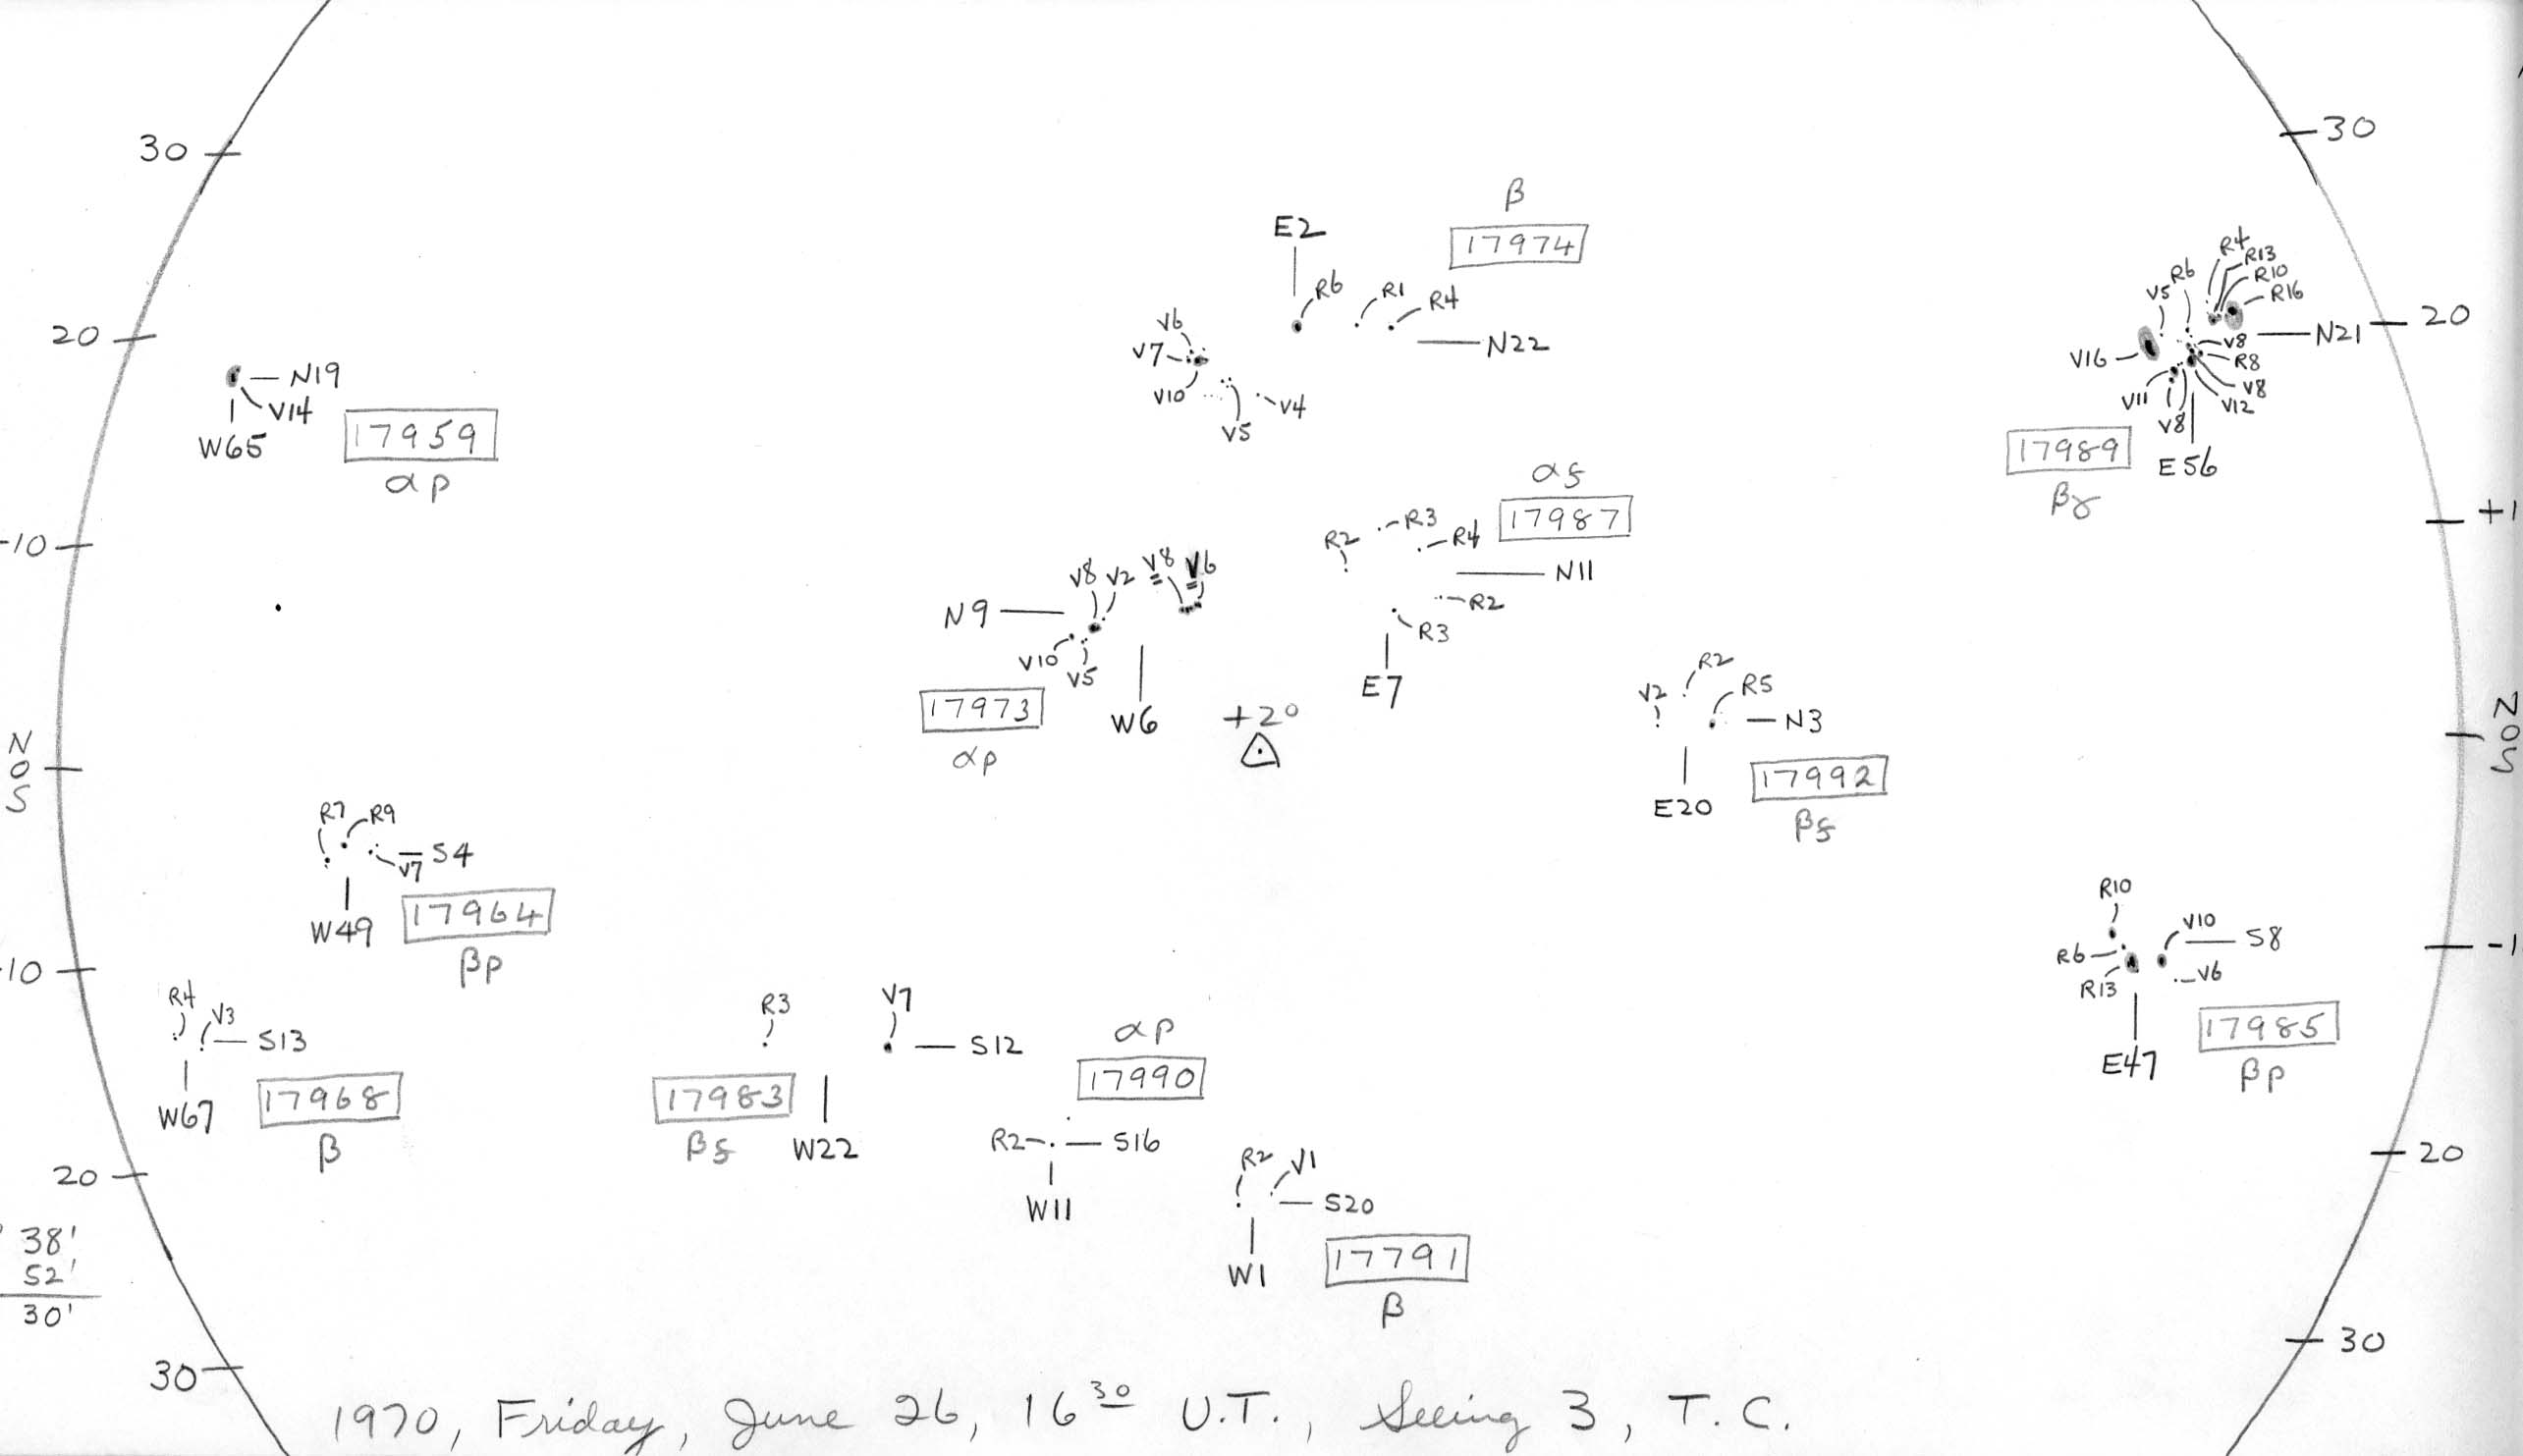 30
30
β
E2
17974
R6
R1
R4
N22
V6
V7
V10
V5
V4
R4
R13
R10
R16
R6
V5
20
20
N21
V16
V8
R8
V8
V12
V11
V8
17989
E56
βγ
N19
V14
W65
17959
αp
αf
17987
R2
R3
R4
N11
R2
R3
E7
+1
-10
V8 V2 V8 V6
N9
V10
V5
17973
W6
αp
+2°
R2
V2
R5
N3
E20
17992
βf
N
0
S
N
0
S
R7
R9
V7
S4
W49
17964
βp
R10
V10
S8
R6
R13
V6
-1
17985
E47
βp
10
R4
V3
S13
W67
17968
β
R3
V7
S12
17983
W22
βf
αp
17990
R2
S16
W11
20
20
R2
V1
S20
W1
17791
β
38'
52'
30'
30
30
1970, Friday, June 26, 16³⁰ U.T., Seeing 3, T.C.